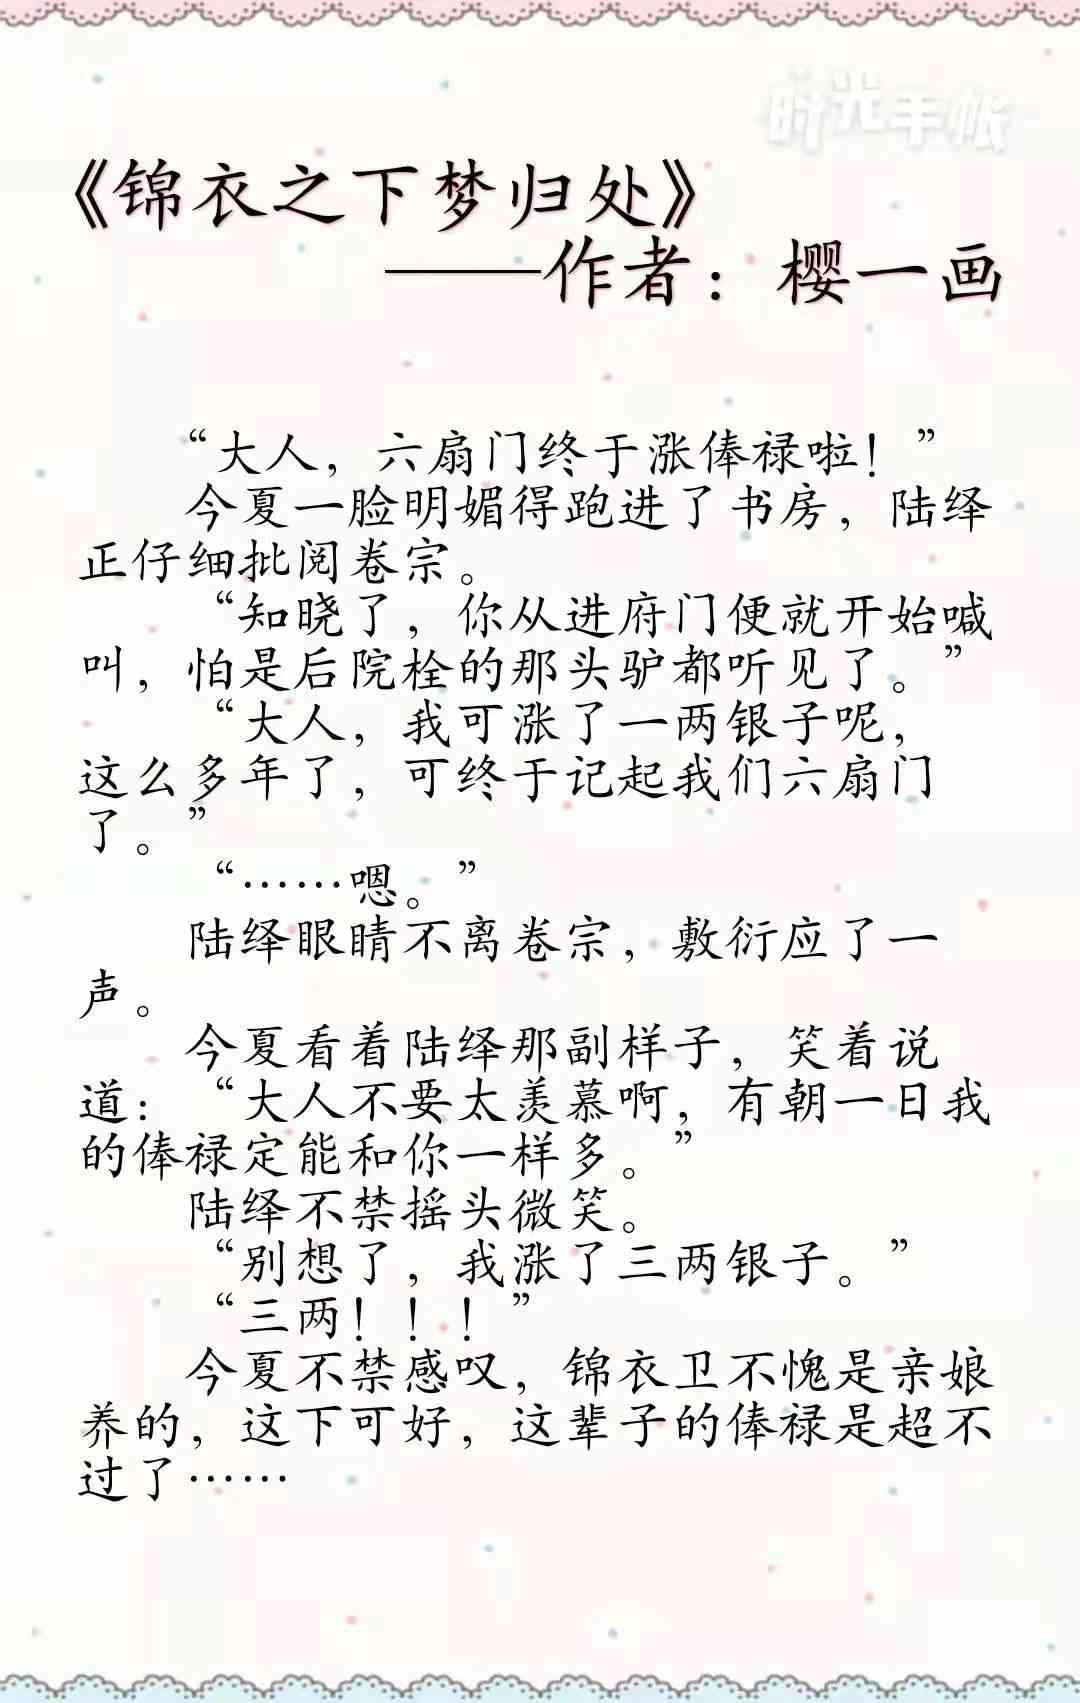 时光手帐
《锦衣之下梦归处》
——作者：樱一画
“大人，六扇门终于涨俸禄啦！”
今夏一脸明媚得跑进了书房，陆绎
正仔细批阅卷宗。
“知晓了，你从进府门便就开始喊
叫，怕是后院栓的那头驴都听见了。”
“大人，我可涨了一两银子呢，
这么多年了，可终于记起我们六扇门
了。”
“……嗯。”
陆绎眼睛不离卷宗，敷衍应了一
声。
今夏看着陆绎那副样子，笑着说
道：“大人不要太羡慕啊，有朝一日我
的俸禄定能和你一样多。”
陆绎不禁摇头微笑。
“别想了，我涨了三两银子。”
“三两！！！”
今夏不禁感叹，锦衣卫不愧是亲娘
养的，这下可好，这辈子的俸禄是超不
过了……